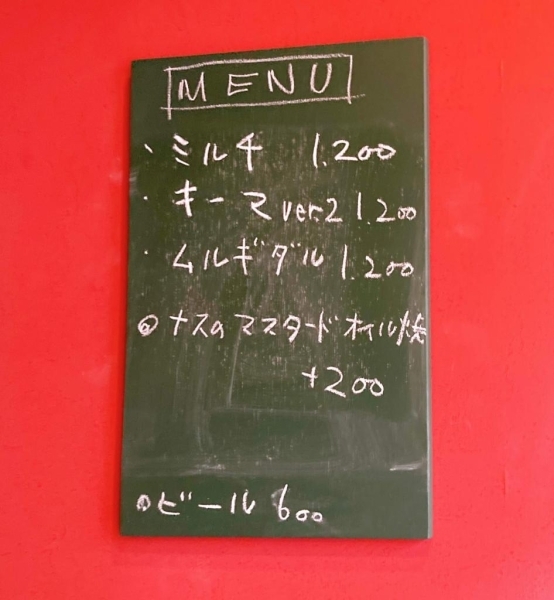 MENU
・ミルチ 1.200
・キーマ ver.2 1.200
・ムルギダル 1.200
◎ナスのマスタードオイル焼
+200
◎ビール 600